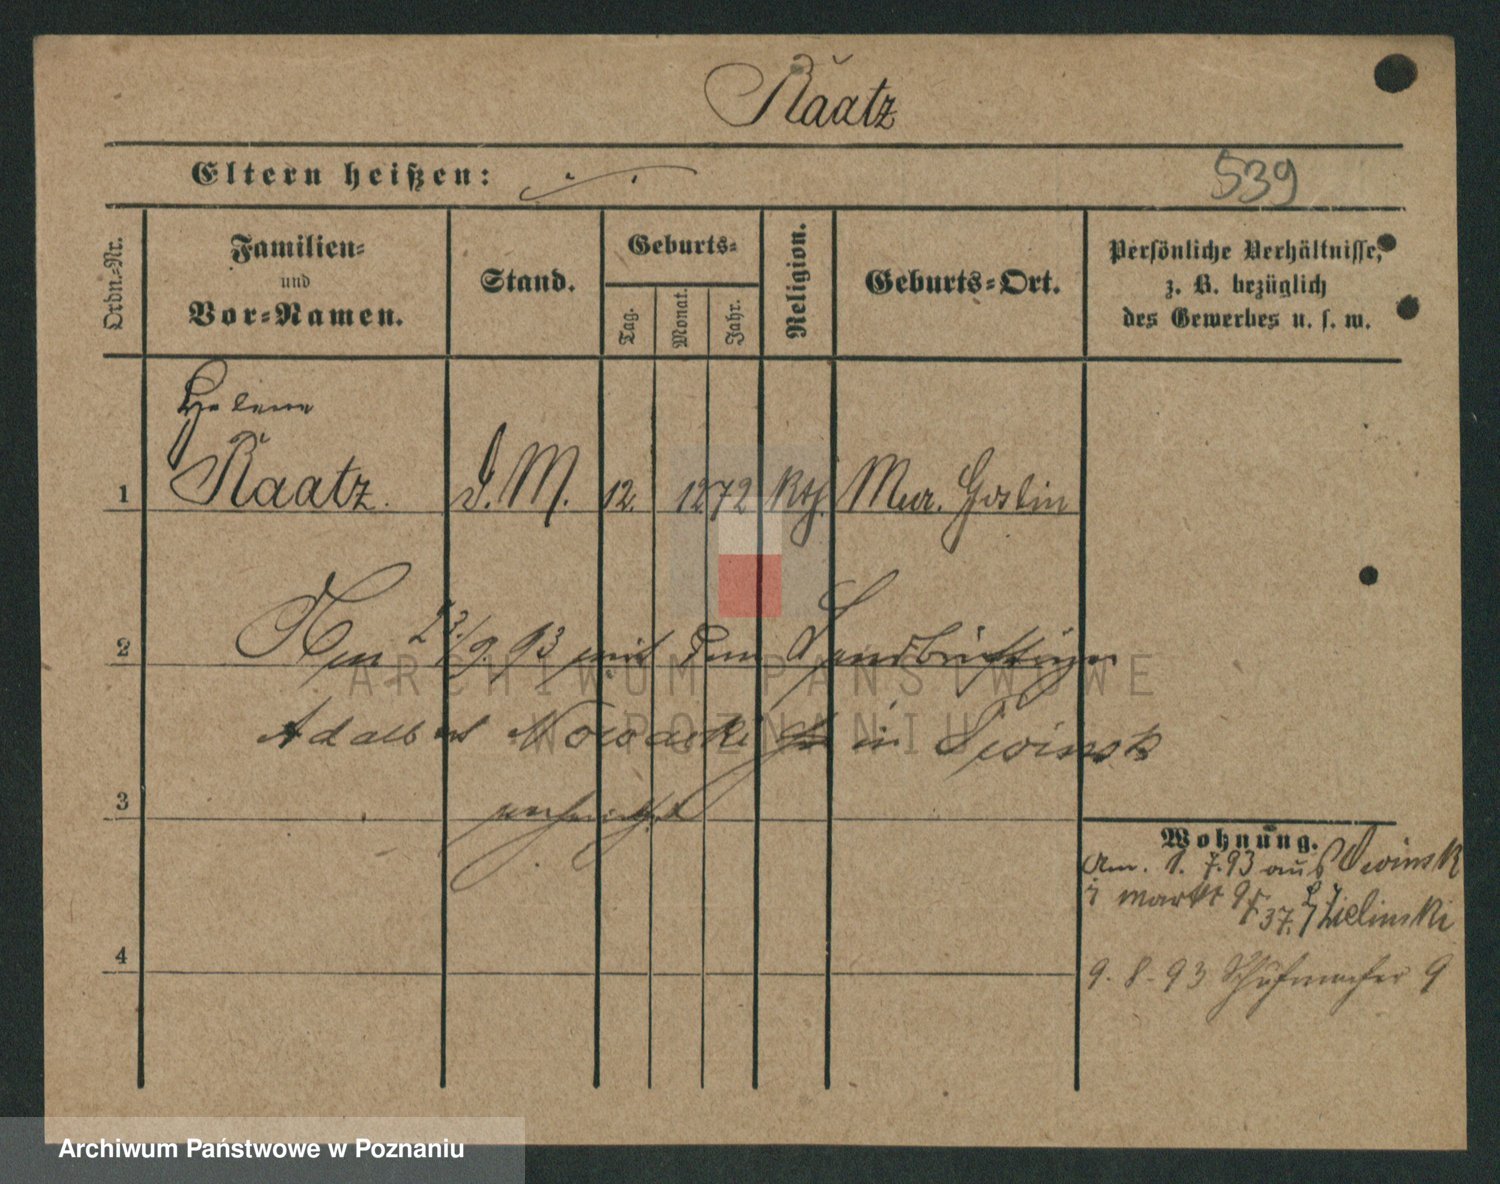 Raatz
Eltern heißen:
539
Ordn.-Nr.
Familien-
und
Vor-Namen.
Stand.
Geburts-
Tag.
Monat.
Jahr.
Religion.
Geburts-Ort.
Persönliche Verhältnisse,
z. B. bezüglich
des Gewerbes u. s. w.
Helene
1 Raatz. D. M. 12. 12 72 Kth. Mur. Goslin
2 23./9. 93 mit dem
Adalbert Nowacki in Dwinsk
3 verheirathet
Wohnung.
Am. 9. 7. 93 aus Dwinsk
37. Zielinski
4
9. 8. 93 Schuhmacher 9
ARCHIWUM PAŃSTWOWE
W POZNANIU
Archiwum Państwowe w Poznaniu